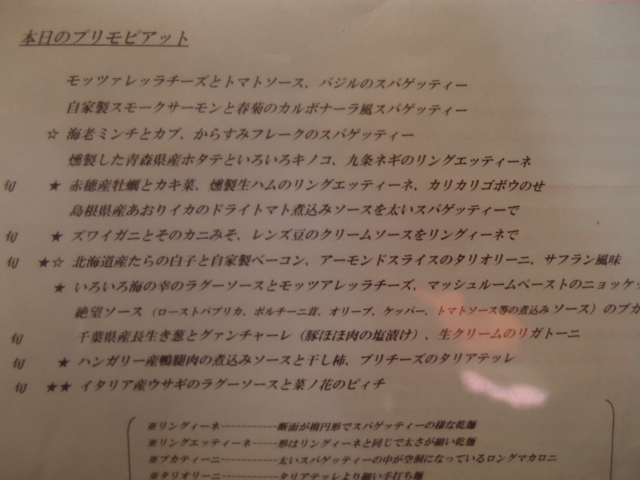 本日のプリモピアット
モッツァレッラチーズとトマトソース、バジルのスパゲッティー
自家製スモークサーモンと春菊のカルボナーラ風スパゲッティー
☆ 海老ミンチとカブ、からすみフレークのスパゲッティー
燻製した青森県産ホタテといろいろキノコ、九条ネギのリングエッティーネ
旬 ★ 赤穂産牡蠣とカキ菜、燻製生ハムのリングエッティーネ、カリカリゴボウのせ
島根県産あおりイカのドライトマト煮込みソースを太いスパゲッティーで
旬 ★ ズワイガニとそのカニみそ、レンズ豆のクリームソースをリングィーネで
旬 ★☆ 北海道産たらの白子と自家製ベーコン、アーモンドスライスのタリオリーニ、サフラン風味
★ いろいろ海の幸のラグーソースとモッツァレッラチーズ、マッシュルームペーストのニョッケ
絶望ソース（ローストパプリカ、ポルチーニ茸、オリーブ、ケッパー、トマトソース等の煮込みソース）のブカ
旬 千葉県産長生き葱とグァンチャーレ（豚ほほ肉の塩漬け）、生クリームのリガトーニ
旬 ★ ハンガリー産鴨腿肉の煮込みソースと干し柿、ブリチーズのタリアテッレ
旬 ★★ イタリア産ウサギのラグーソースと菜ノ花のピィチ
※リングィーネ----------断面が楕円形でスパゲッティーの様な乾麺
※リングエッティーネ-----形はリングィーネと同じで太さが細い乾麺
※ブカティーニ----------太いスパゲッティーの中が空洞になっているロングマカロニ
※タリオリーニ----------タリアテッレより細い手打ち麺